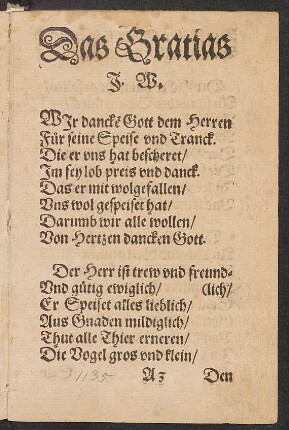 Das Gratias
J. W.
WJr danckē Gott dem Herren
Für seine Speise vnd Tranck.
Die er vns hat bescheret/
Jm sey lob preis vnd danck.
Das er mit wolgefallen/
Vns wol gespeiset hat/
Darumb wir alle wollen/
Von Hertzen dancken Gott.
Der Herr ist trew vnd freund-
Vnd gütig ewiglich/ (lich/
Er Speiset alles lieblich/
Aus Gnaden mildiglich/
Thut alle Thier erneren/
Die Vogel gros vnd klein/
1135
A3 Den